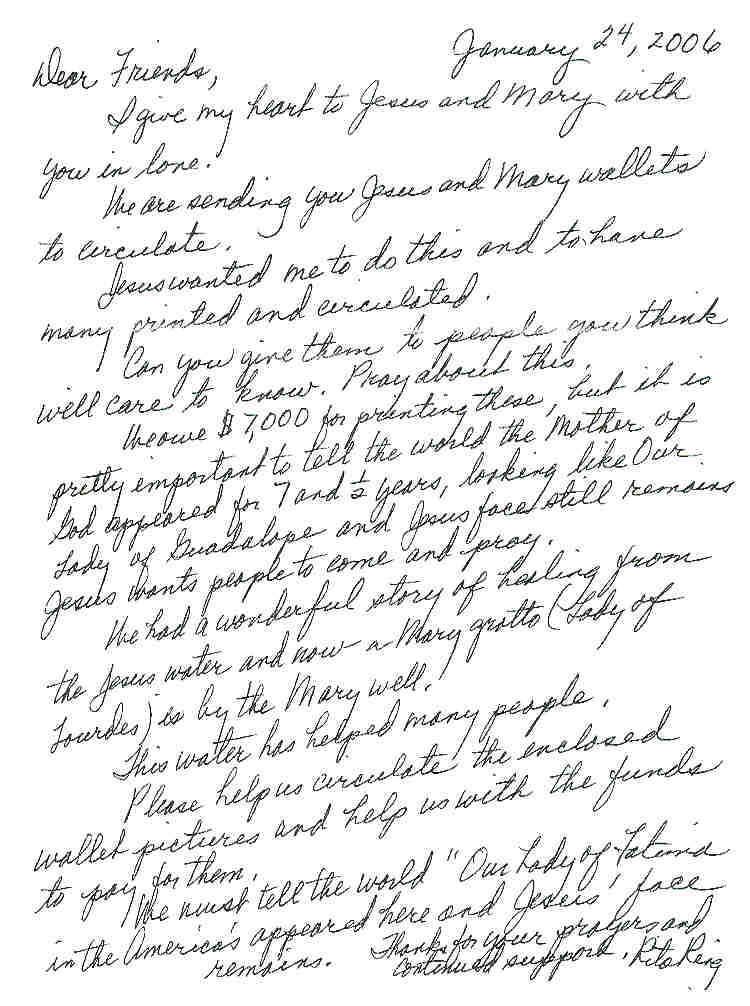 January 24, 2006
Dear Friends,
I give my heart to Jesus and Mary with
you in love.
We are sending you Jesus and Mary wallets
to circulate.
Jesus wanted me to do this and to have
many printed and circulated.
Can you give them to people you think
will care to know. Pray about this.
We owe $7,000 for printing these, but it is
pretty important to tell the world the Mother of
God appeared for 7 and ½ years, looking like Our
Lady of Guadalope and Jesus face still remains
Jesus wants people to come and pray.
We had a wonderful story of healing from
the Jesus water and now a Mary grotto (Lady of
Lourdes) is by the Mary well.
This water has helped many people.
Please help us circulate the enclosed
wallet pictures and help us with the funds
to pay for them.
We must tell the world "Our Lady of Fatima
in the America's appeared here and Jesus' face
remains. Thanks for your prayers and
continued support, Rita Ring